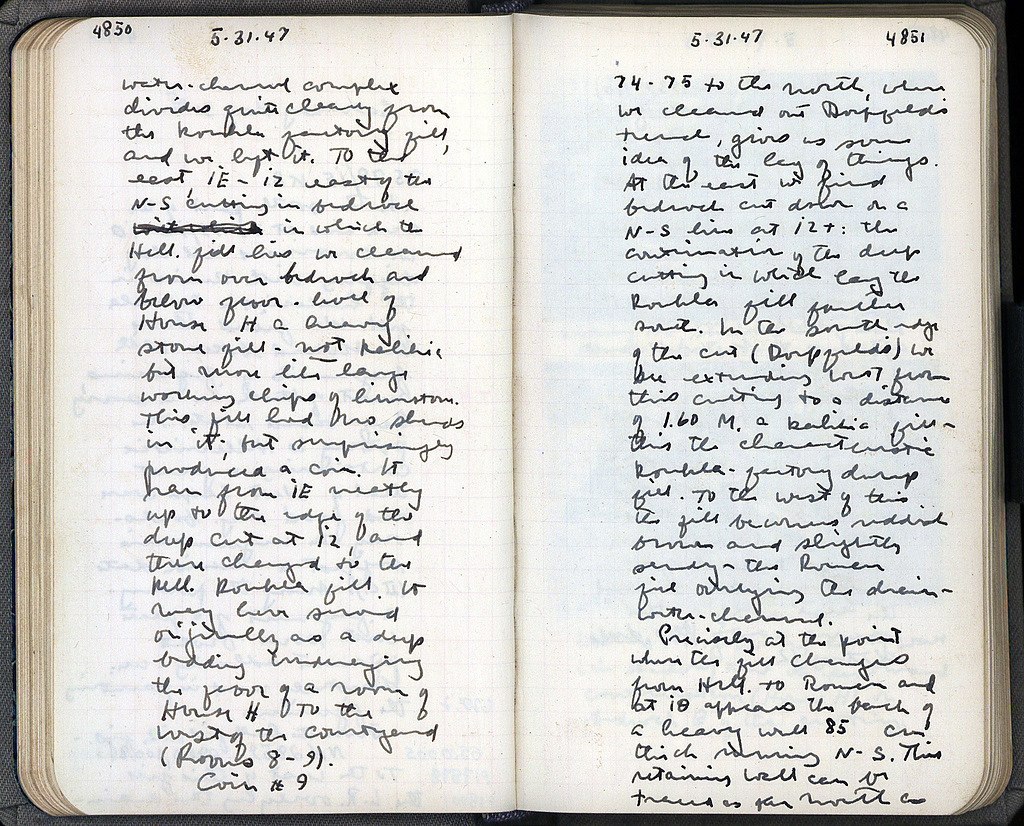 4850
5·31·47
water-channel complex
divides quite clearly from
the Roubla factory fill,
and we left it. To the
east, ΙΕ - ΙΖ east of the
N-S cutting in bedrock
in which the
Hell. fill lies we cleaned
from over bedrock and
below floor-level of
House H a heavy
stone fill - not kalikia
but more like large
working chips of limestone.
This fill had no sherds
in it, but surprisingly
produced a coin. It
ran from ΙΕ neatly
up to the edge of the
deep cut at ΙΖ, and
there changed to the
Hell. Roubla fill. It
may have served
originally as a deep
bedding underlying
the floor of a room of
House H to the
west of the courtyard
(Rooms 8-9).
Coin # 9
5·31·47
4851
74-75 to the north, where
we cleaned out Dörpfeld's
trench, gives us some
idea of the lay of things.
At the east we find
bedrock cut down on a
N-S line at ΙΖ+: the
continuation of the deep
cutting in which lay the
Roubla fill further
south. In the south edge
of the cut (Dörpfeld's) we
see extending west from
this cutting to a distance
of 1.60 M. a kalikia fill -
this the characteristic
Roubla-factory dump
fill. To the west of this
the fill becomes reddish
brown and slightly
sandy - the Roman
fill overlying the drain-
water-channel.
Precisely at the point
where the fill changes
from Hell. to Roman and
at ΙΘ appears the back of
a heavy wall 85 cm
thick running N-S. This
retaining wall can be
traced as far north as